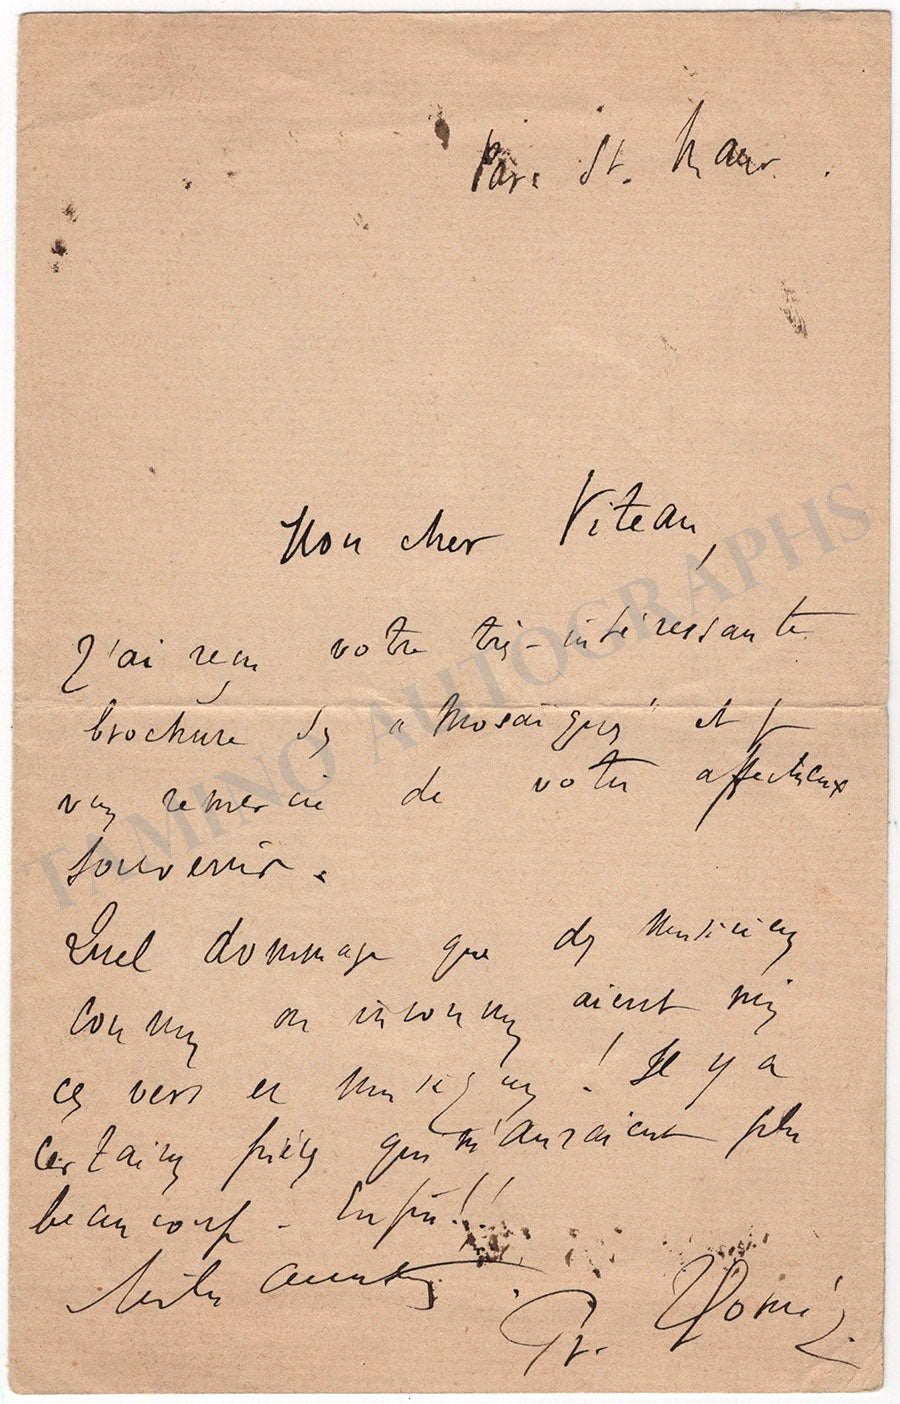 Parc St. Maur.
Mon cher Viteau,
J'ai reçu votre très-intéressante
brochure des "Mosaïques" et je
vous remercie de votre affectueux
souvenir.
Quel dommage que des musiciens
connus ou inconnus aient mis
ces vers en musique ! Il y a
certaines pièces qui m'auraient plu
beaucoup - Enfin !!
Milles amitiés
Fr. Thomé
TAMINO AUTOGRAPHS